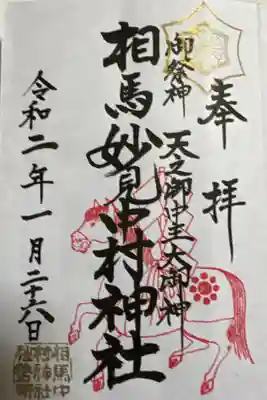 奉拝
御祭神
天之御中主大御神
相馬妙見中村神社
令和二年一月二十六日
相馬中
村神社
社務所